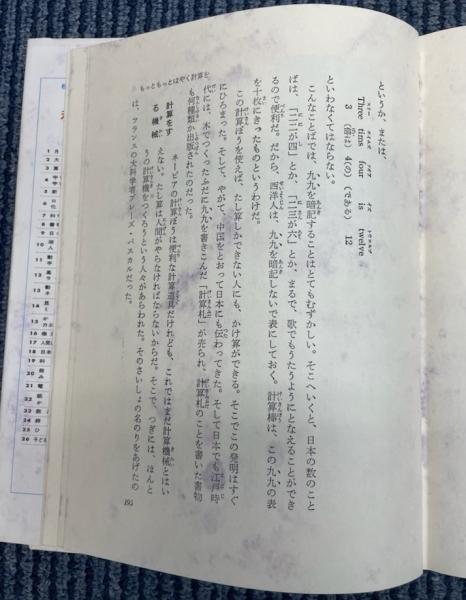 というか、または、
Three tims four is twelve
スリー タイムズ フオア イズ トウエルブ
3 (倍は) 4(の) (である) 12
といわなくてはならない。
こんなことばでは、九九を暗記することはとてもむずかしい。そこへいくと、日本の数のこと
ばは、「二二が四」とか、「二三が六」とか、まるで、歌でもうたうようにとなえることができ
るので便利だ。だから、西洋人は、九九を暗記しないで表にしておく。計算棒は、この九九の表
を十枚にきったものというわけだ。
この計算ぼうを使えば、たし算しかできない人にも、かけ算ができる。そこでこの発明はすぐ
にひろまった。そして、やがて、中国をとおって日本にも伝わってきた。そして日本でも江戸時
代には、木でつくったふだに九九を書きこんだ「計算札」が売られ、計算札のことを書いた書物
も何種類か出版されたのだった。
計算をす
る機械
ネーピアの計算ぼうは便利な計算道具だけれども、これではまだ計算機械とはい
えない。たし算は人間がやらなければならないからだ。そこで、つぎには、ほんと
うの計算機をつくろうという人々があらわれた。そのさいしょの名のりをあげたの
は、フランスの大科学者ブレーズ・パスカルだった。
もっともっとはやく計算を
195